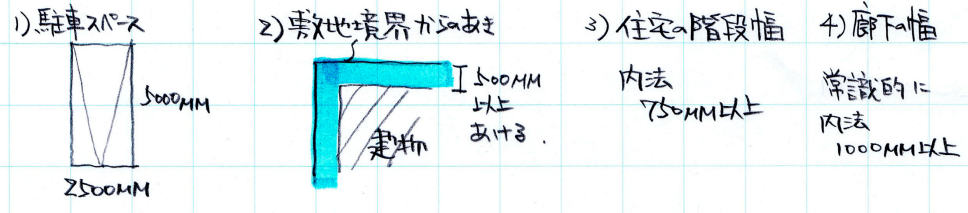 1) 駐車スペース
5000MM
2500MM
2) 敷地境界からのあき
500MM
以上
あける.
建物
3) 住宅の階段幅
内法
750MM以上
4) 廊下の幅
常識的に
内法
1000MM以上